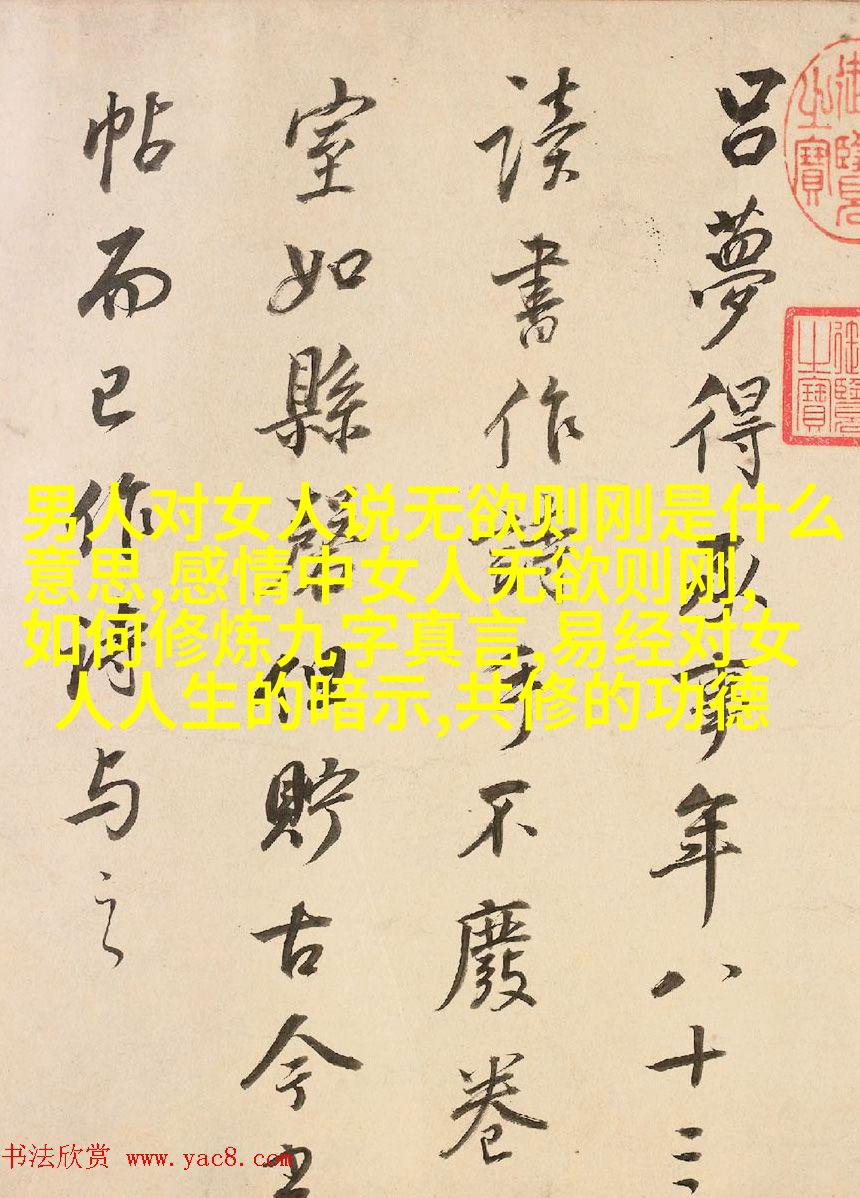 御覽之寶
御覽之寶
呂夢得承事年八十三
讀書作詩手不廢卷
室如縣磬但貯古今
帖而已作詩与之
男人对女人说无欲则刚是什么
意思,感情中女人无欲则刚,
如何修炼九字真言,易经对女
人人生的暗示,共修的功德
书法欣赏 www.yac8.com